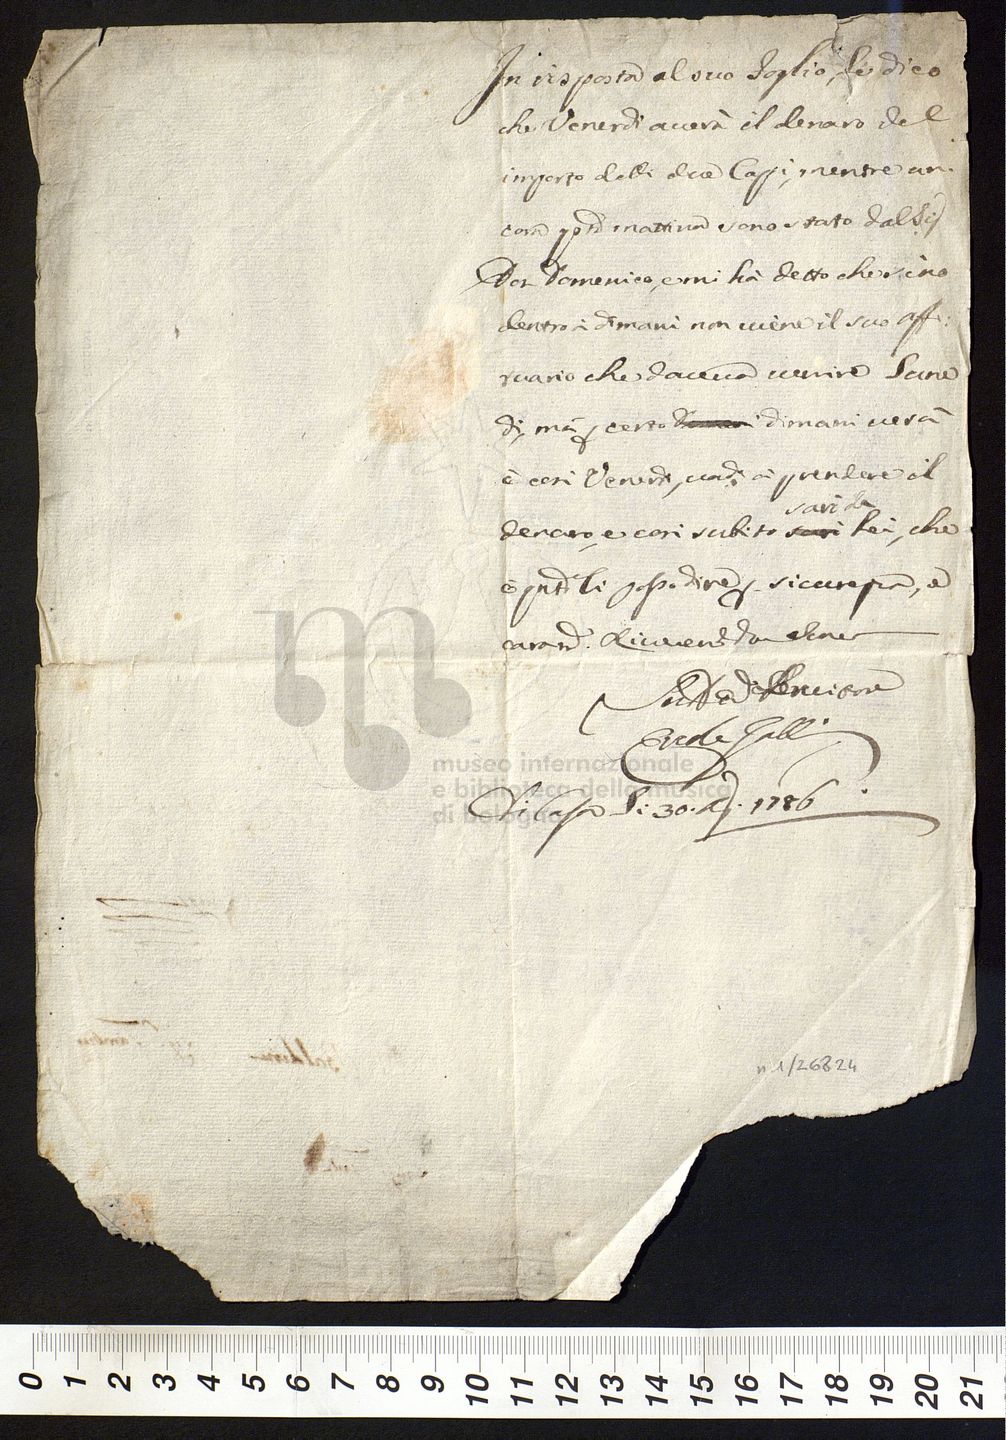 In risposta al suo Foglio, le dico
che Venerdi averà il denaro del
importo delli due Cappi, mentre an-
cora questa mattina sono stato dal Sig.
Dot. Domenico, e mi hà detto che sino
dentro à dimani non viene il suo aff:
tuario che doveva venire Lune
di, mà p certo dimani verà
è cosi Venerdi, vadi à prendere il
denaro, e cosi subito sarò da
Lei, che
è quanto li posso dire p. sicurezza, e
Riverendola
Di Casa li 30. 1786
n 1/26824
museo internazionale
e biblioteca della musica
di bologna
0 1 2 3 4 5 6 7 8 9 10 11 12 13 14 15 16 17 18 19 20 21